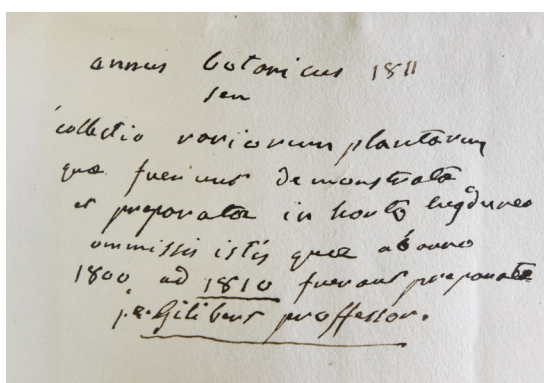 annus botanicus 1811
seu
collectio variorum plantarum
quæ fuerunt demonstratæ
et preparatæ in horto lugduneo
ommissis istis quæ ab anno
1800 ad 1810 fuerant preparatæ
Gilibert proffessor.